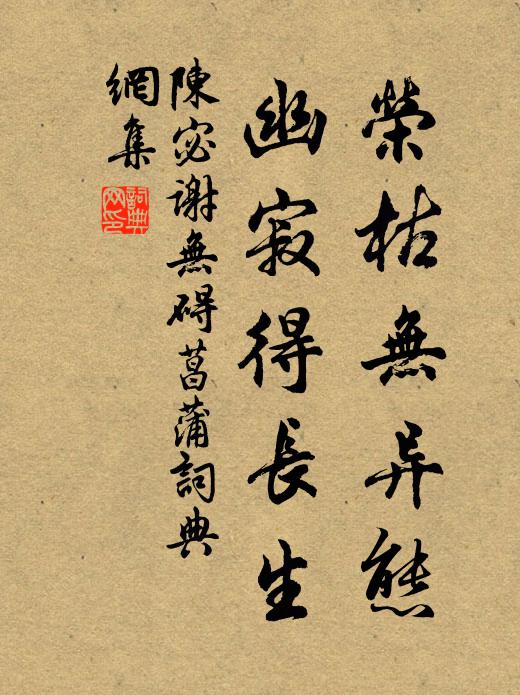 榮枯無异態
幽寂得長生
陳宓謝無碍菖蒲詞典
網集
詞典
网印